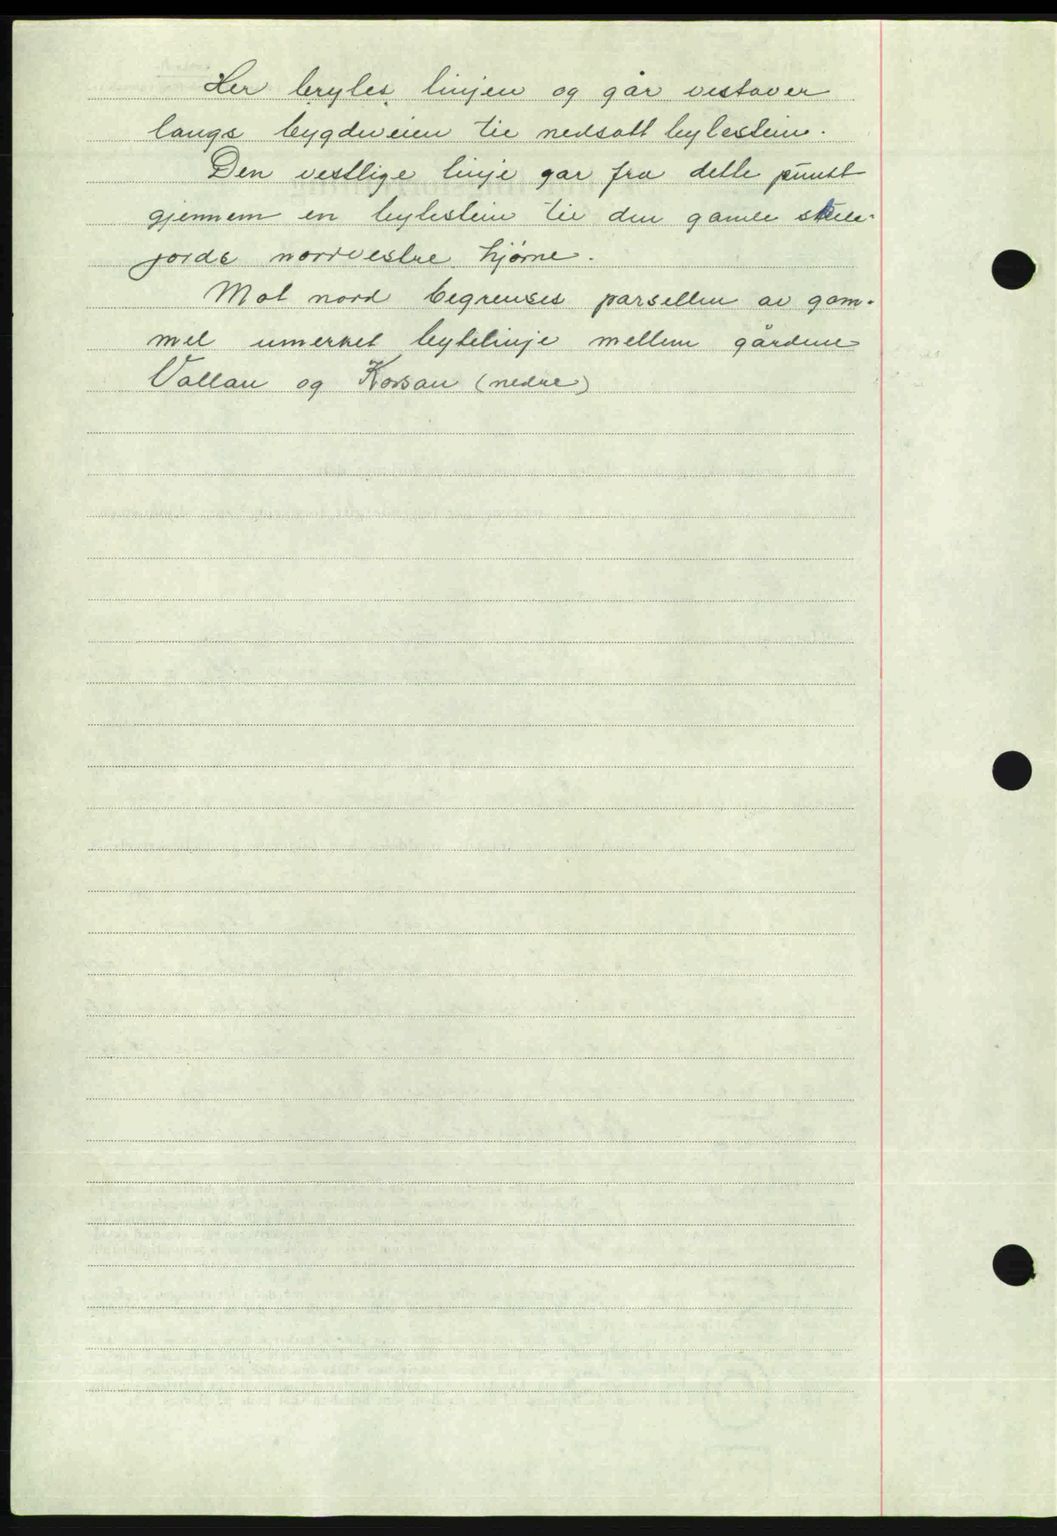 Her brytes linjen og går vestover
langs bygdeveien til nedsatt bytestein.
Den vestlige linje går fra dette punkt
gjennem en bytestein til den gamle skole-
jords nordvestre hjørne.
Mot nord begrenses parsellen av gam-
mel umerket bytelinje mellem gårdene
Vollan og Korsan (nedre)